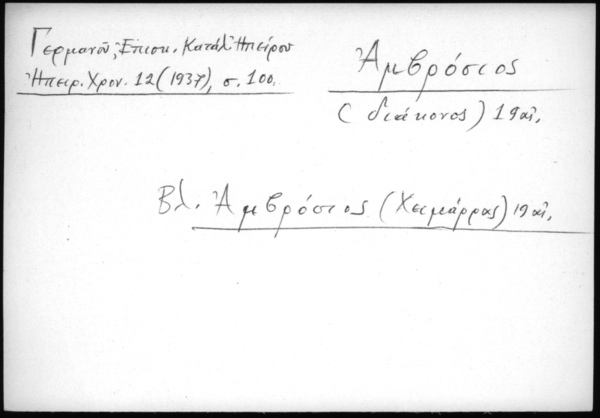 Γερμανοῦ, Ἐπισκ. Κατάλ. Ἠπείρου
Ἠπειρ. Χρον. 12 (1937), σ. 100.
Ἀμβρόσιος
(διάκονος) 19 αἰ.
Βλ. Ἀμβρόσιος (Χειμάρρας) 19 αἰ.